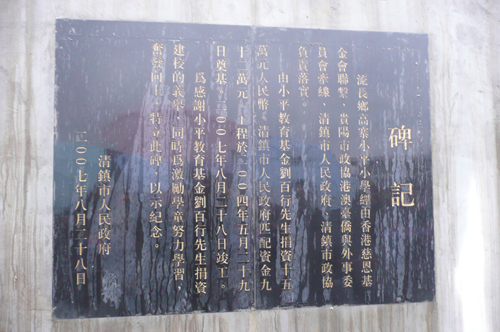 碑記
流長鄉高寨小平小學經由香港慈恩基
金會聯繫、貴陽市政協港澳臺僑與外事委
員會牽線、清鎮市人民政府、清鎮市政協
負責落實。
由小平教育基金劉百行先生捐資十五
萬元人民幣。清鎮市人民政府匹配資金九
十二萬元、工程於二〇〇四年五月二十九
日奠基、二〇〇七年八月二十八日竣工。
為感謝小平教育基金劉百行先生捐資
建校的義舉、同時為激勵學童努力學習、
奮發向上、特立此碑、以示紀念。
清鎮市人民政府
二〇〇七年八月二十八日